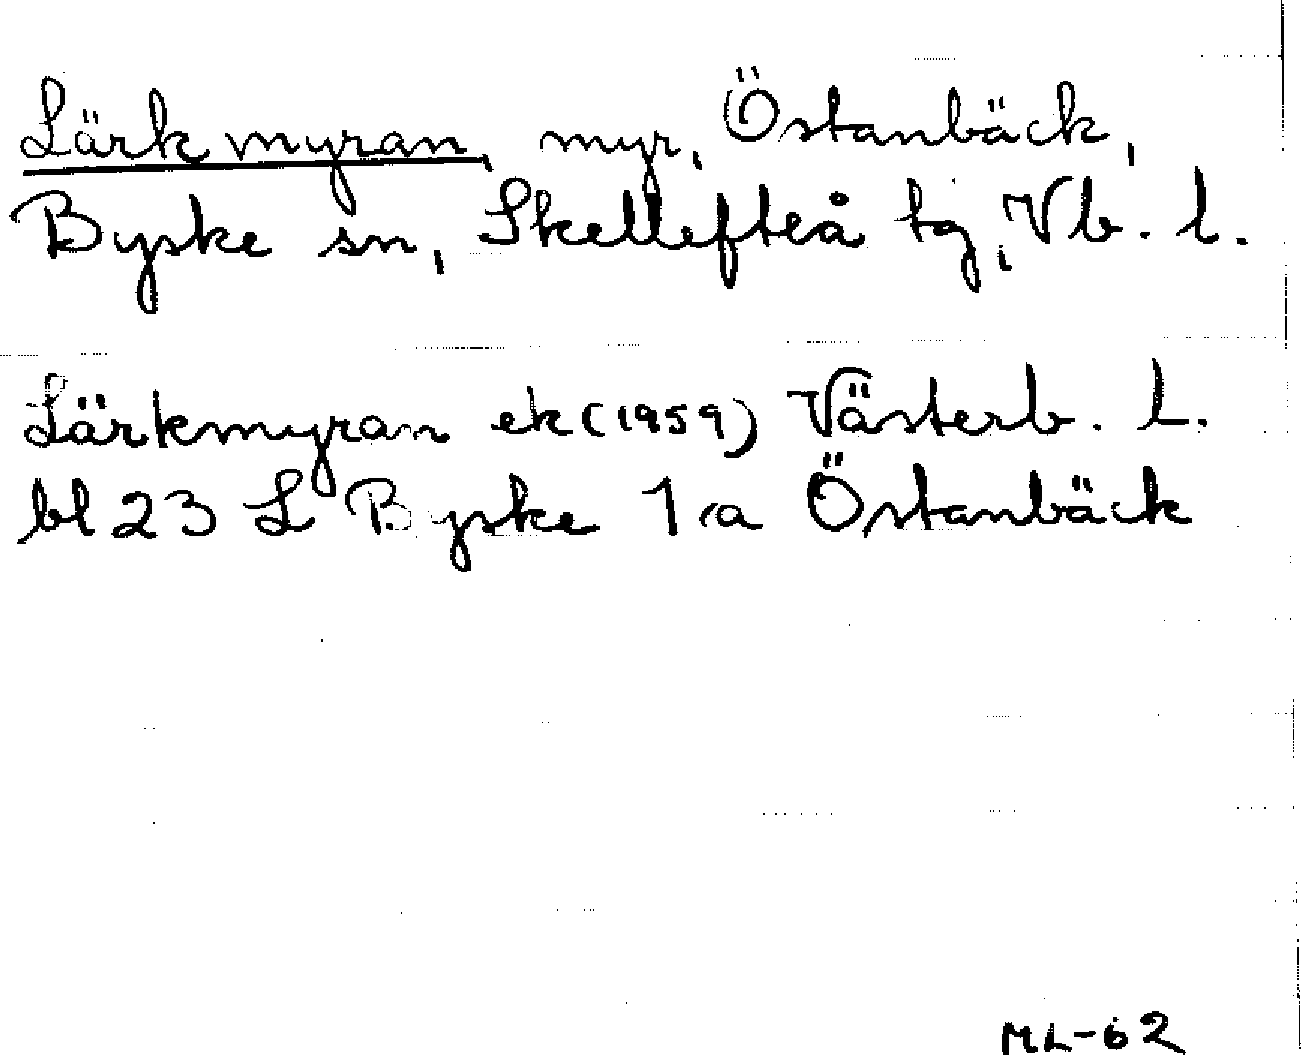 Lärkmyran, myr, Östanbäck,
Byske sn, Skellefteå tg, Vb. l.
Lärkmyran ek (1959) Västerb. L.
bl 23 L Byske 1 a Östanbäck
ML-62